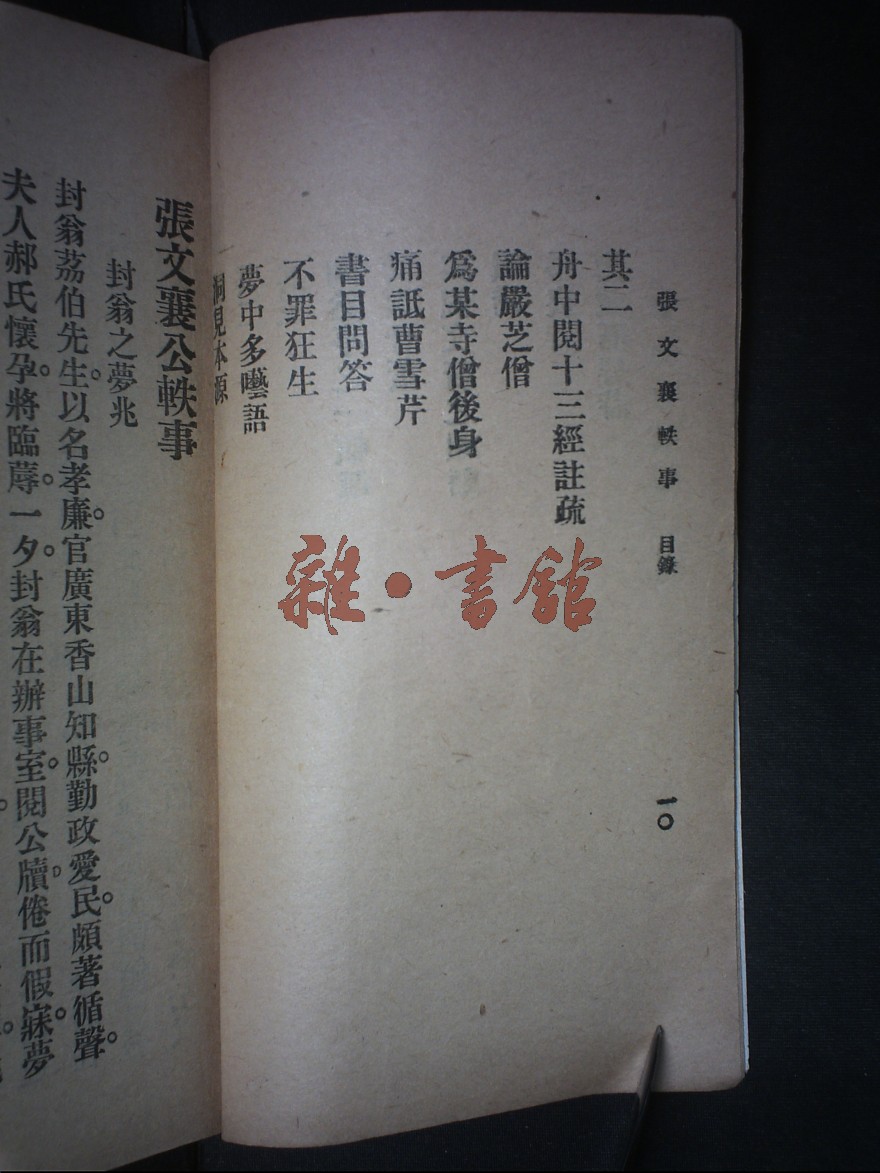 張文襄軼事 目錄 一〇
其二
舟中閱十三經註疏
論嚴芝僧
爲某寺僧後身
痛詆曹雪芹
書目問答
不罪狂生
夢中多囈語
洞見本源
張文襄公軼事
封翁之夢兆
封翁荔伯先生。以名孝廉。官廣東香山知縣。勤政愛民。頗著循聲。
夫人郝氏懷孕。將臨蓐。一夕。封翁在辦事室。閱公牘。倦而假寐。夢
雜·書館